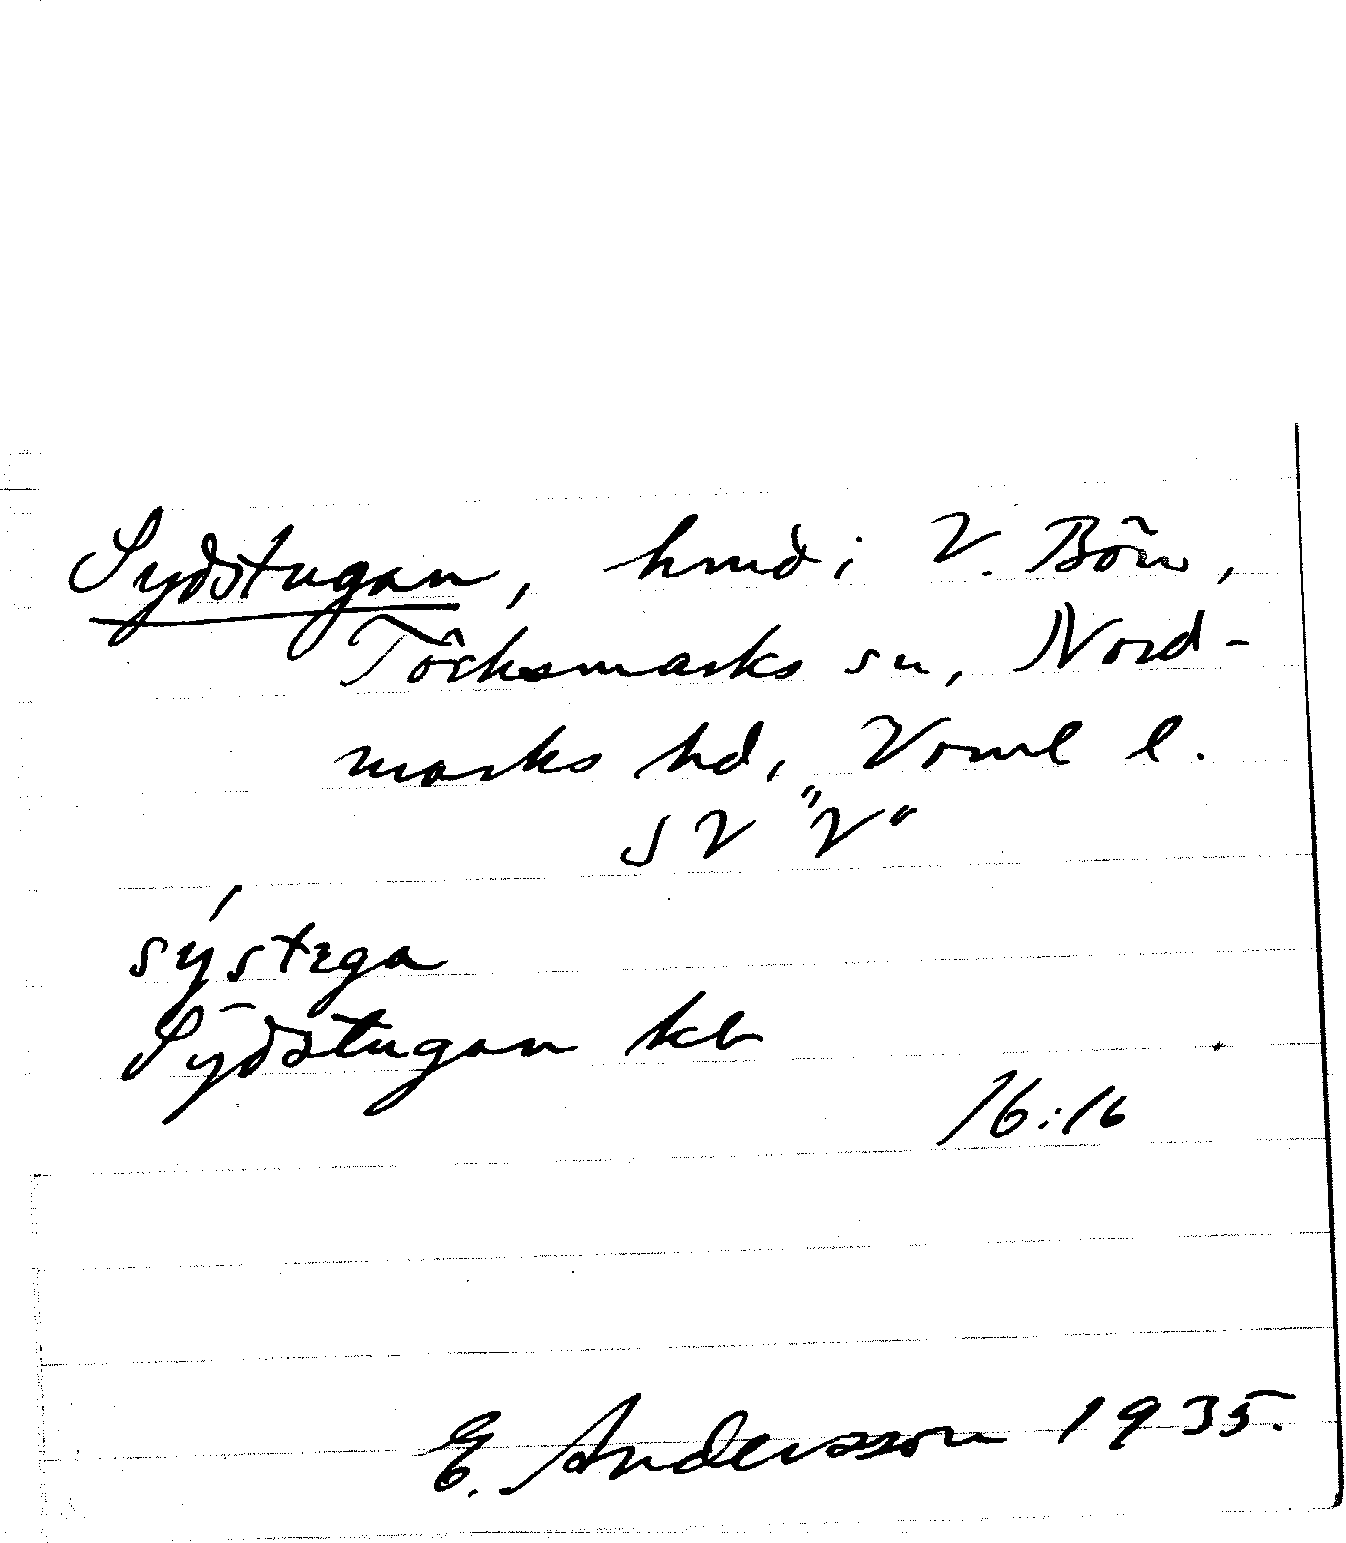 Sydstugan, hmd i V. Bön,
Töcksmarks sn, Nord-
marks hd, Vrml l.
SV "V"
sýstɛga
Sydstugan kb
16:16
E. Andersson 1935.